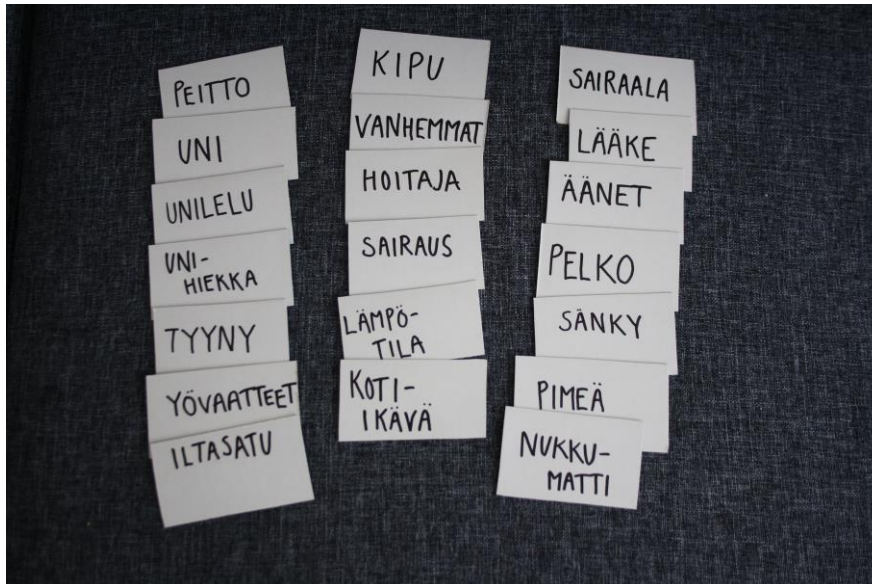 PEITTO
UNI
UNILELU
UNI-
HIEKKA
TYYNY
YÖVAATTEET
ILTASATU
KIPU
VANHEMMAT
HOITAJA
SAIRAUS
LÄMPÖ-
TILA
KOTI-
IKÄVÄ
SAIRAALA
LÄÄKE
ÄÄNET
PELKO
SÄNKY
PIMEÄ
NUKKU-
MATTI